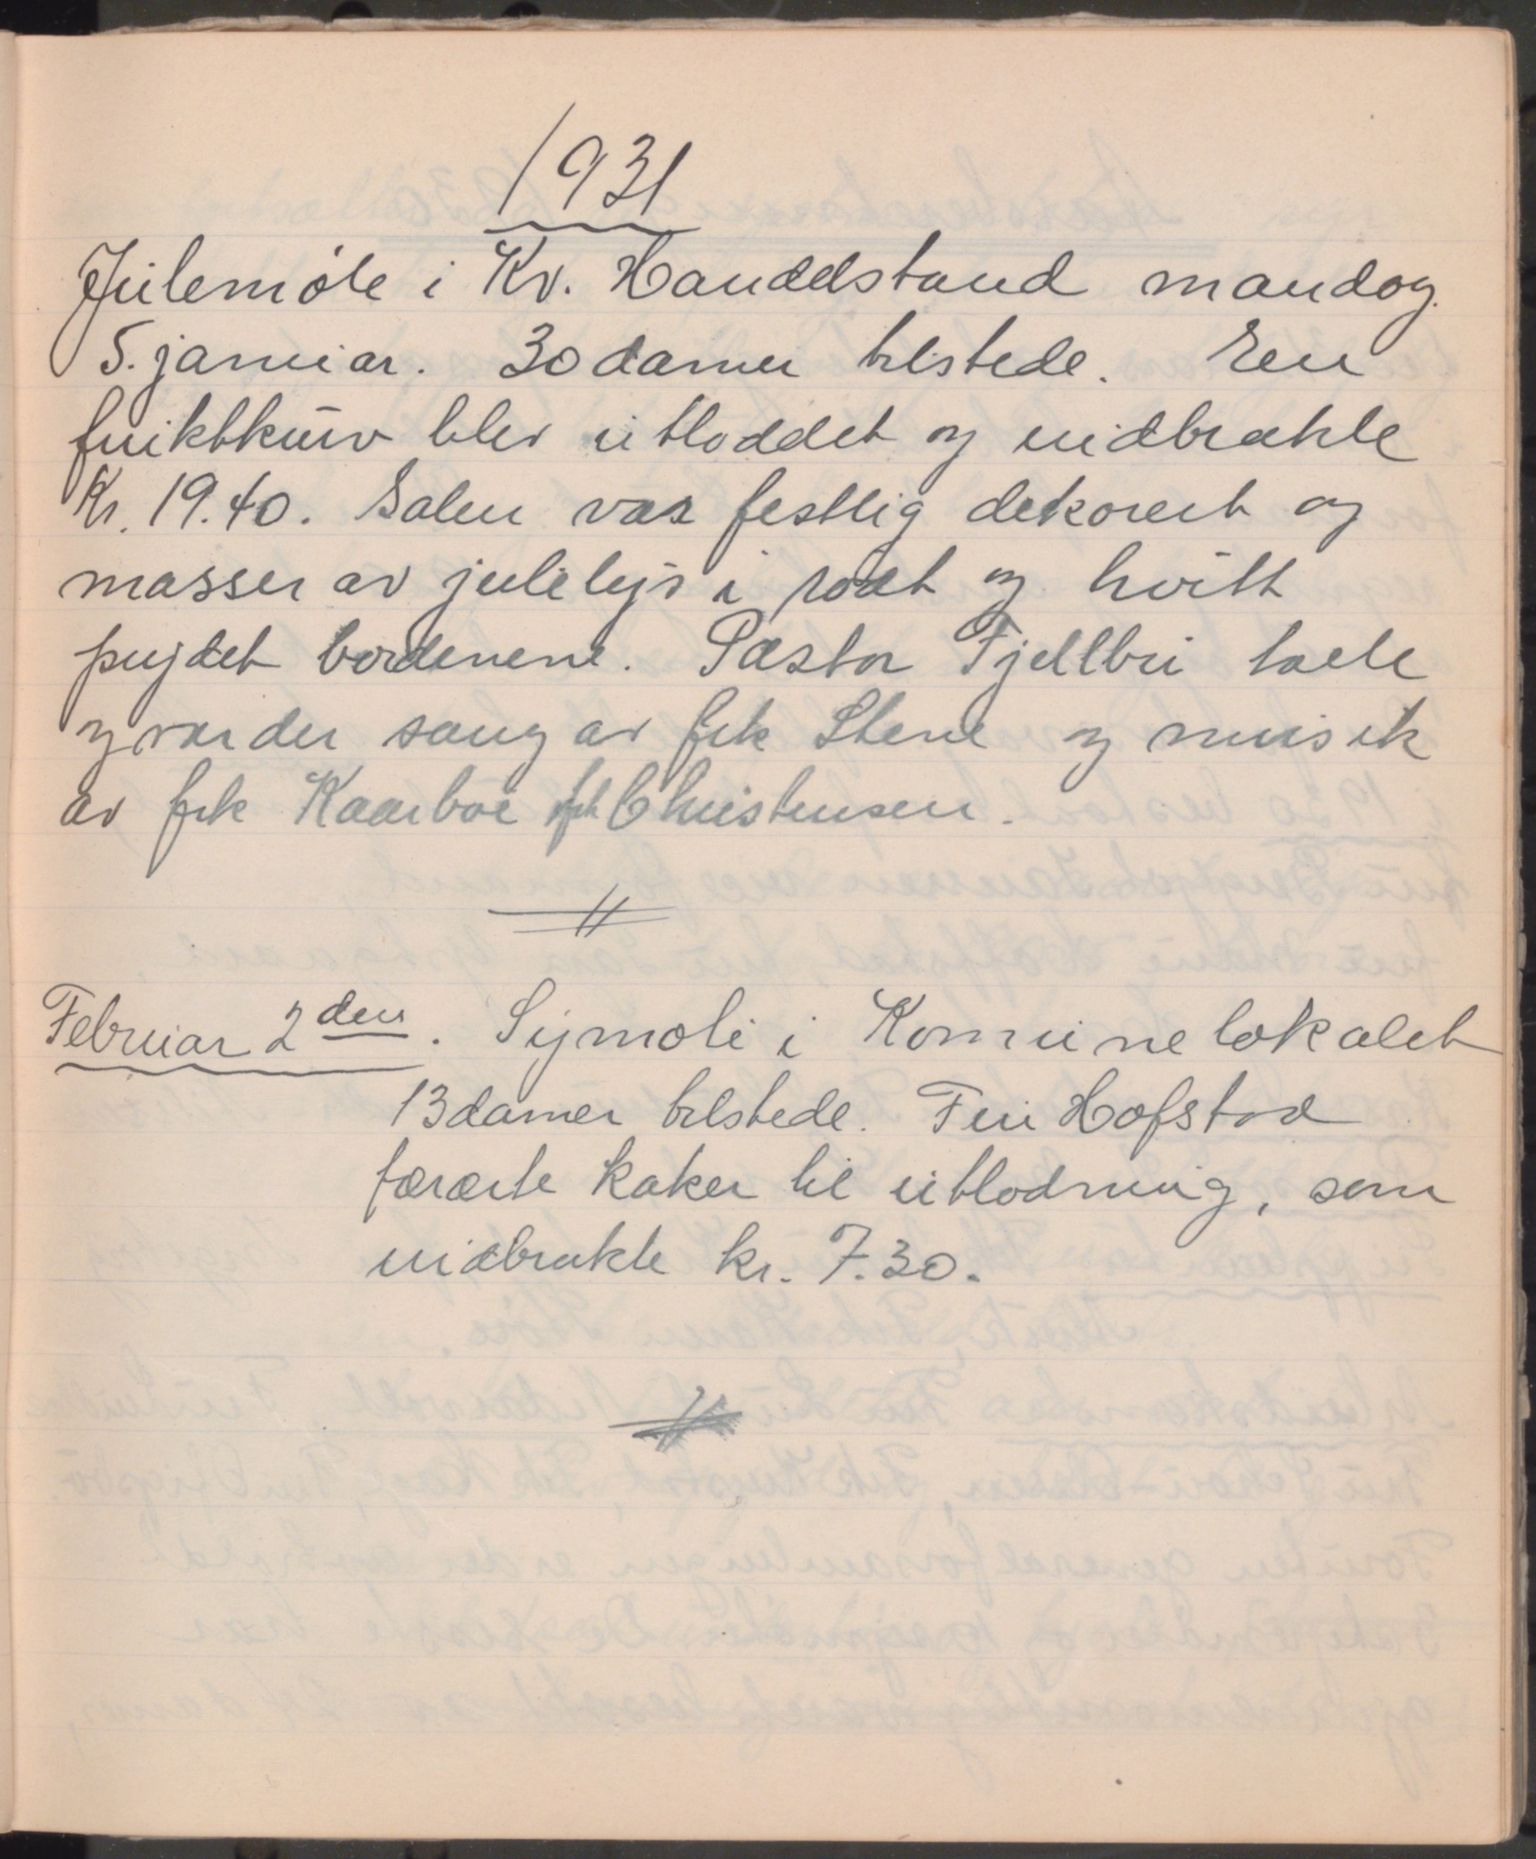 1931
Julemøte i Kv. Handelstand mandag
5. januar. 30 damer tilstede. En
fruktkurv blev utloddet og indbrakte
Kr. 19.40. Salen var festlig dekorert og
masser av julelys i rødt og hvitt
prydet bordenene. Pastor Fjellbu talte
og var der sang av frk Stene og musik
av frk Kaarboe frk Christensen.
Februar 2den. Symøte i Komunelokalet
13 damer tilstede. Fru Hofstad
forærte kaker til utlodning, som
indbrakte kr. 7.30.